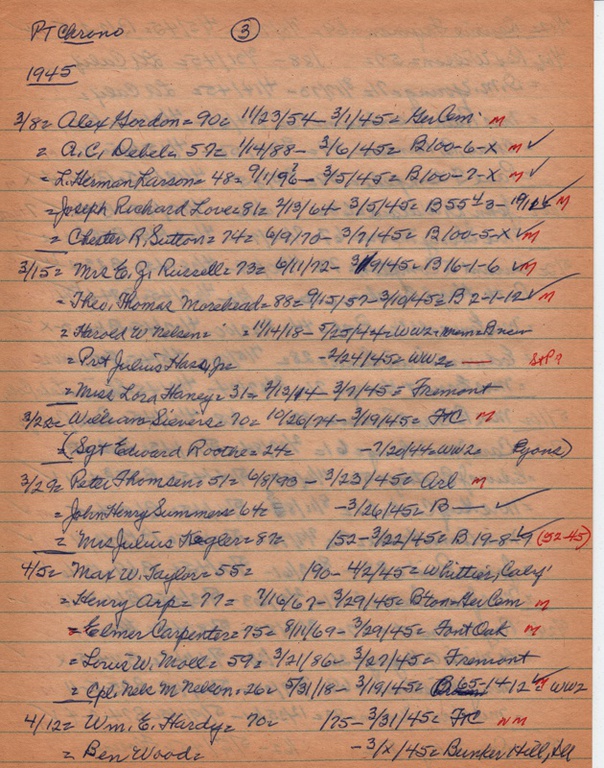 PT Chrono ③
1945
3/8 = Alex Gordon = 90 = 11/23/54 - 3/1/45 = Ger Cem. M
= A.C. Debel = 57 = 1/14/88 - 3/6/45 = B100-6-X M ✓
= L. Herman Larson = 48 = 9/11/96? - 3/5/45 = B100-7-X M ✓
= Joseph Richard Love = 81 = 2/13/64 3/5/45 = B 55 3- ✓ M
= Chester R. Sutton = 74 = 6/9/70 - 3/7/45 = B100-5-X ✓ M
3/15 = Mrs E. J. Russell = 73 = 6/11/72 - 3/9/45 = B16-1-6 ✓ M
= Theo. Thomas Morehead = 88 = 9/15/57 - 3/10/45 = B 2-1-12 ✓ M
= Herold W Nelsen = = 11/14/18 - 5/25/44 = WW2 =
= Pvt Julius Hass, Jr - 2/24/45 = WW2 = —
= Miss Lora Haney = 31 = 3/13/14 3/7/45 = Fremont
3/22 = William Sievers = 70 = 10/26/74 - 3/19/45 = FtC M
= (Sgt Edward Roothe = 24 = - 7/20/44 = WW2 = Lyons)
3/29 = Peter Thomsen = 51 = 6/8/93 - 3/23/45 = Arl M
= John Henry Summers = 64 = - 3/26/45 = B — ✓
= Mrs Julius Kegler = 87 = 152 - 3/22/45 = B 19-8-9 ✓ (52-45)
4/5 = Max W. Taylor = 55 = 190 - 4/2/45 = Whittier, Calif
= Henry Arp = 77 = 7/16/67 - 3/29/45 = Bton-Ger Cem M
= Elmer Carpenter = 75 = 8/11/69 - 3/29/45 = Font Oak M
= Louis W. Moll = 59 = 3/21/86 - 3/27/45 = Fremont
= Cpl. Nels M Nelson = 26 = 5/31/18 - 3/19/45 65-14-12 ✓ M WW2
4/12 = Wm. E. Hardy = 70 = /75 - 3/31/45 = FtC NM
= Ben Wood = - 3/X/45 = Bunker Hill, Ill